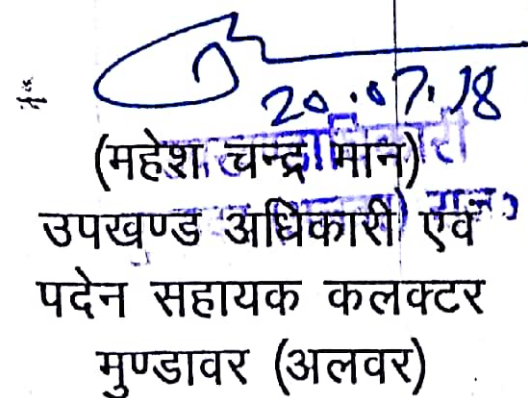 20.07.18
(महेश चन्द्र मान)
उपखण्ड अधिकारी एवं
पदेन सहायक कलक्टर
मुण्डावर (अलवर)